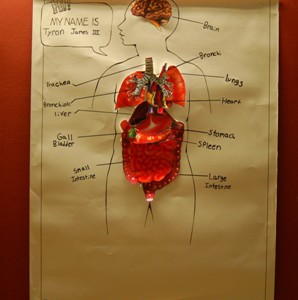 MY NAME IS
Tyron James III
Brain
Bronchi
Trachea
Lungs
Bronchiole
Heart
liver
Gall
Bladder
Stomach
Spleen
Small
Intestine
Large
Intestine